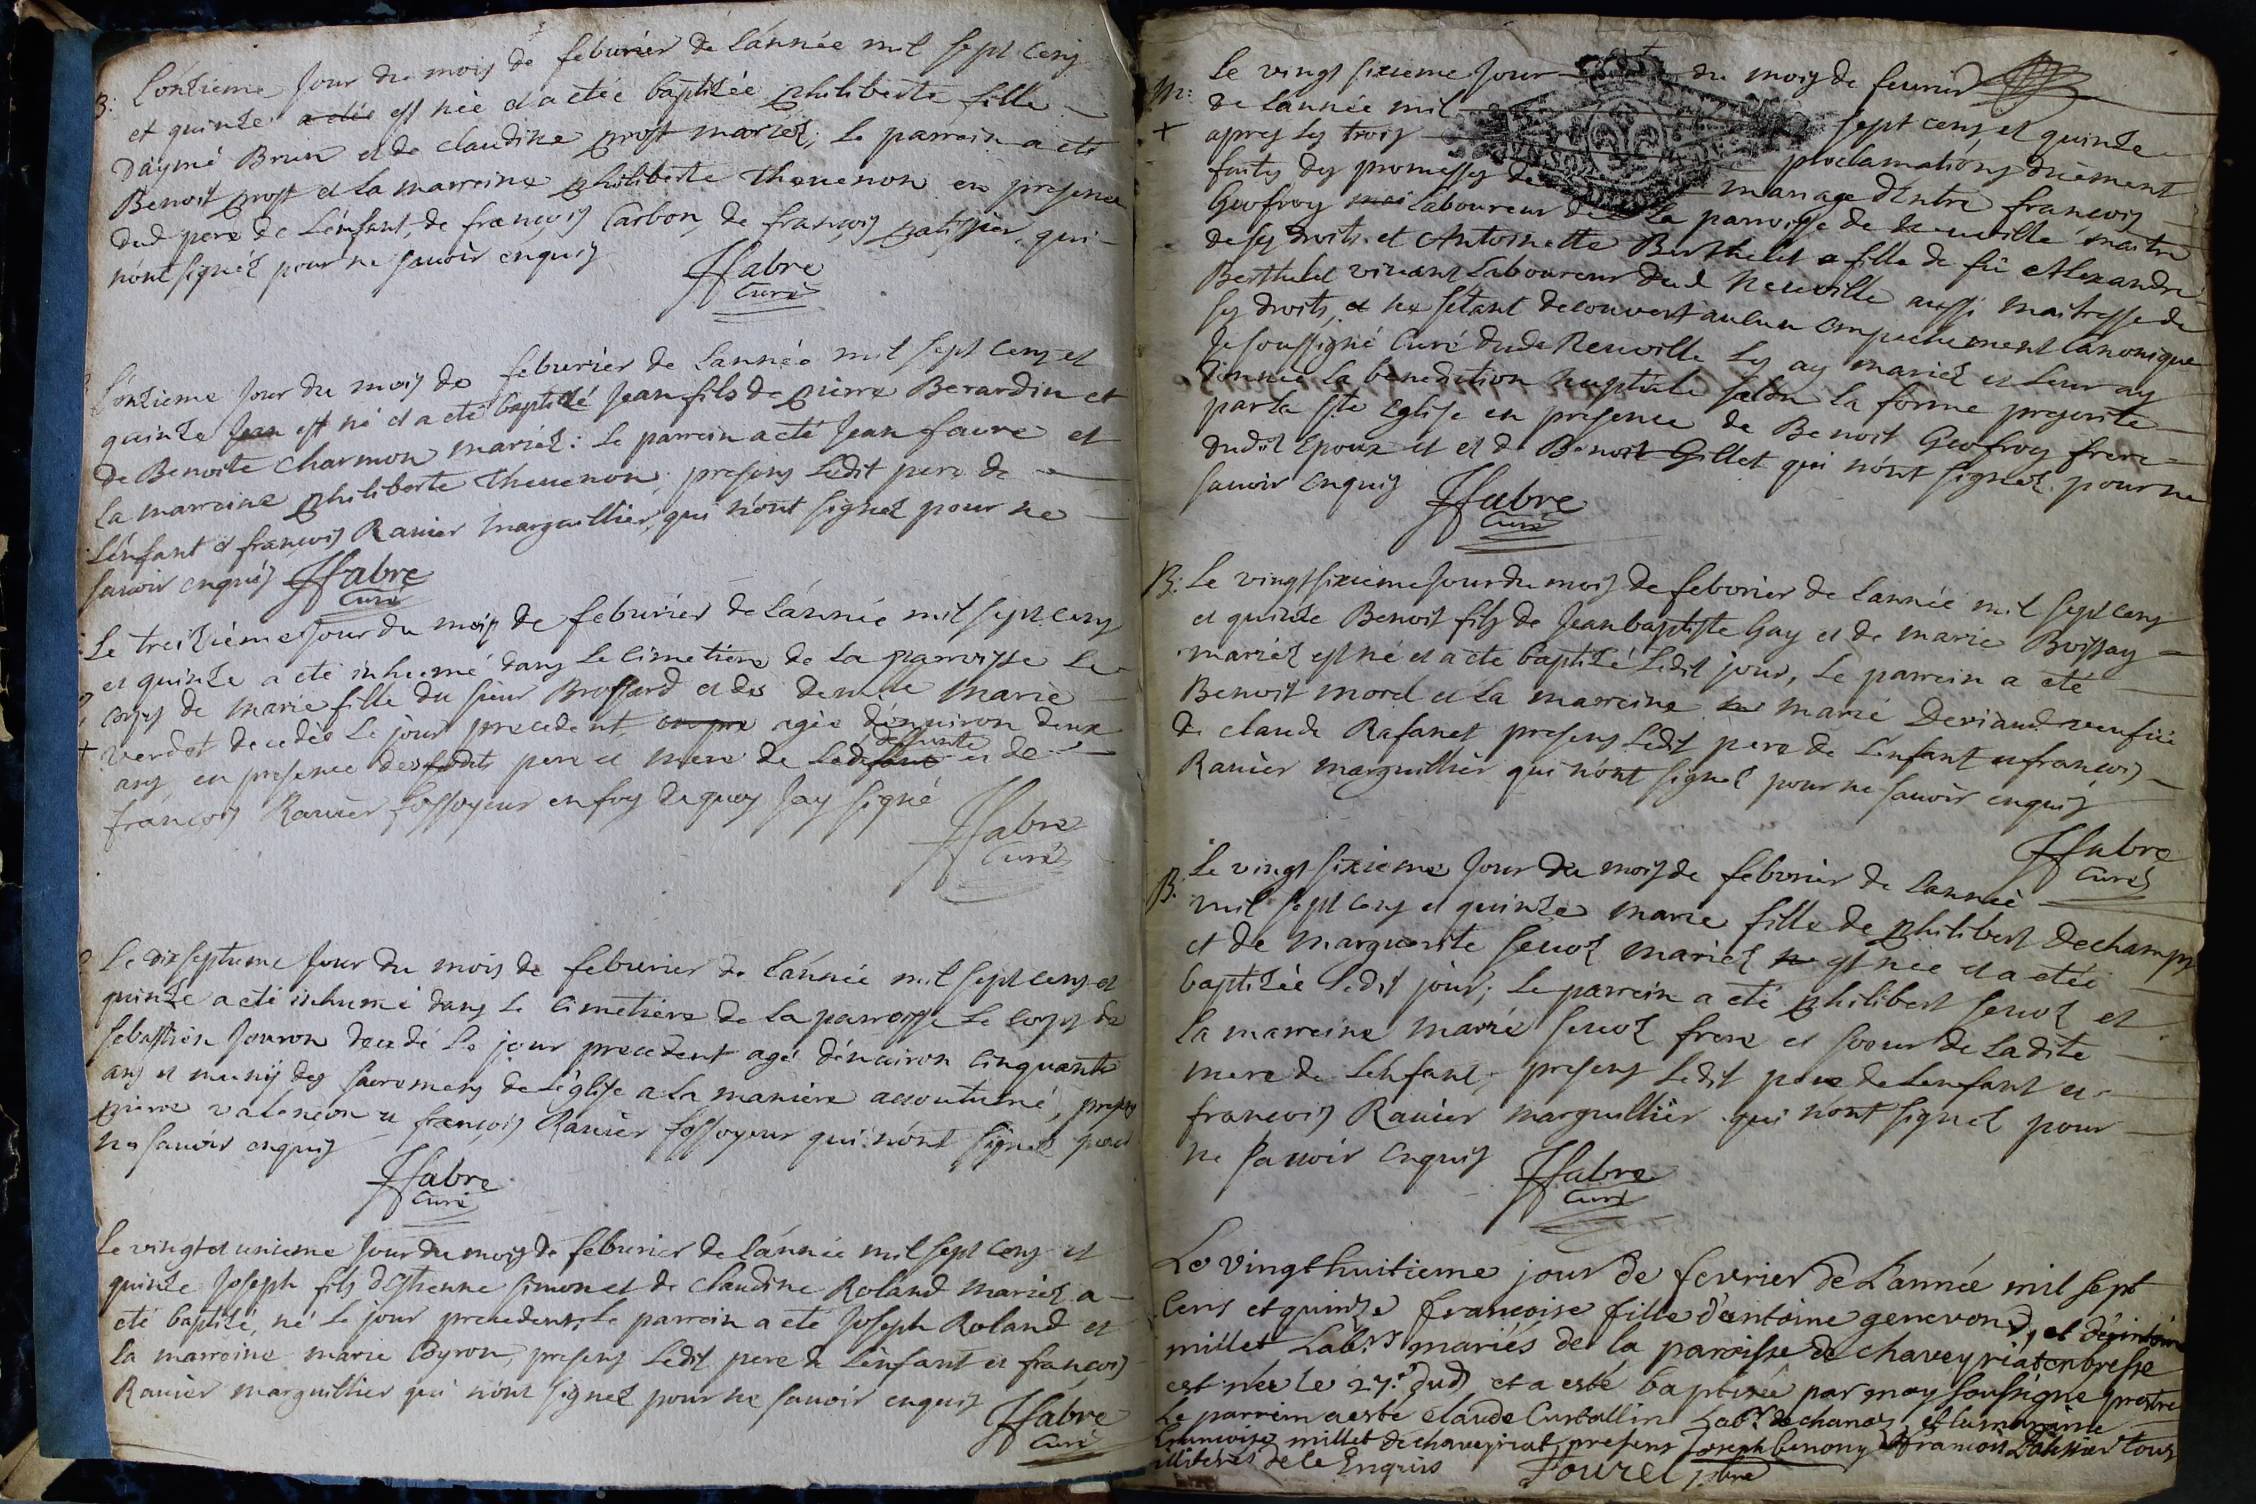 B: L'onzieme Jour du mois de feburier de L'année mil sept cens
et quinze a été est née et a etée baptizée philiberte fille
D'aymé Brun et de claudine prost mariez; Le parrain a eté
Benoist prost et La marreine philiberte Theuenon en presence
dud pere de L'enfant, de francois Carbon, de françois patissier, qui
n'ont signéz pour ne sauoir enquis
JFabre
Curé
L'onzieme Jour du mois de feburier de L'année mil sept cens et
quinze Jean est né et a eté baptizé Jean fils de pierre Berardin et
de Benoite Charmon mariez: Le parrein a eté Jean faure et
La marraine philiberte Theuenon; presens Ledit pere de
L'enfant et francois Rauier marguillier, qui n'ont signez pour ne
sauoir enquis JFabre
Curé
Le treizième Jour du mois de feburier de L'année mil sept cens
et quinze a eté inhumé dans Le cimetiere de La parroisse Le
corps de marie fille du sieur Brossard et de marie
+ Verdet decedée Le jour precedent agée d'enuiron deux
ans, en presence desdits pere et mere de Lad deffunte et de
françois Rauier fossoyeur en foy dequoy J'ay signé
JFabre
Curé
Le dix septieme Jour du mois de feburier de L'année mil sept cens et
quinze a eté inhumé dans Le cimetiere de La parroisse Le corps de
Sebastien Jouron decedé Le jour precedent agé d'enuiron cinquante
ans et muny des sacremens de L'église a La maniere accoutumé, presens
pierre valencon et françois Rauier fossoyeur qui n'ont signez pour
ne sauoir enquis
JFabre
Curé
Le vingt et unieme Jour du mois de feburier de L'année mil sept cens et
quinze Joseph fils d'Estienne Simonet de claudine Roland mariez a
eté baptizé, né Le jour precedent, Le parrain a eté Joseph Roland et
La marreine marie Coyron, presens Ledit pere de L'enfant et françois
Rauier marguillier qui n'ont signez pour ne sauoir enquis
JFabre
Curé
M: Le vingt sixieme Jour du mois de feurier
de L'année mil sept cens et quinze
+ apres Les trois proclamations duëment
faites des promesses de mariage d'Entre françois
Geofroy Laboureur de La parroisse de Neuuille maitre
de ses droits et Antoinette Berthelet fille de fû Alexandre
Berthelet viuant Laboureur dud Neuuille aussi maitresse de
ses droits, et ne s'etant decouvert aucun empechement canonique
Je soussigné Curé dud Neuuille Les ay mariez et Leur ay
donnée La benediction nuptiale selon la forme prescrite
par La ste Eglise en presence de Benoit Geofroy frere
dudit Epoux et et de Benoit Gillet qui n'ont signez pour ne
sauoir enquis JFabre
Curé
B: Le vingt sixieme Jour du mois de feburier de L'année mil sept cens
et quinze Benoit fils de Jean baptiste Gay et de marie Boissay
mariez est né et a eté baptizé Ledit jour, Le parrein a eté
Benoit morel et La marreine marie Deriaud
de claude Rafanet presens Ledit pere de L'enfant et francois
Rauier marguillier qui n'ont signez pour ne sauoir enquis
JFabre
Curé
B. Le vingt sixieme Jour du mois de feburier de L'année
mil sept cens et quinze marie fille de philibert Dechamps
et de marguerite Seuoz mariez est née et a etée
baptizée Ledit jour; Le parrein a eté philibert Seuoz et
La marreine marie Seuoz frere et soeur de Ladite
mere de L'enfant, presens Ledit pere de L'enfant et
francois Rauier marguillier qui n'ont signez pour
ne sauoir enquis JFabre
Curé
Le vingt huitieme jour de fevrier de L'année mil sept
cens et quinze francoise fille d'antoine genevond, et
millet Lab.rs mariés de la paroisse de chaveyriat en bresse
est née le 27.e dud et a esté baptisée par moy soussigné prestre
Le parrein a esté claude Curtallin Lab.r de chanoz, et la marreine
francoise millet de chaveyriat, presens Joseph benony et francois tous
illiterés de ce Enquis Tourel pbre